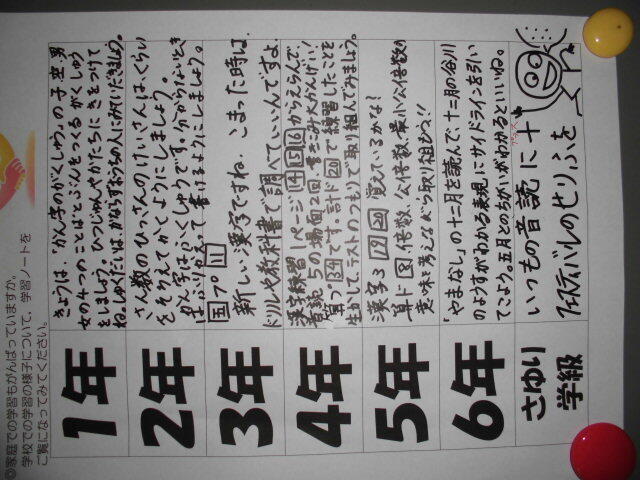 ◎家庭での学習もがんばっていますか。
学校での学習の様子について、学習ノートを
ご覧になってみてください。
1年
きょうは、「かん字のがくしゅう」の子、空、男
女の4つのことばとぶんをつくるがくしゅう
をしましょう。ひつじゅんやかたちにきをつけて
2年
さん数のひっさんのけいさんは、くらい
をそろえてかくようにしましょう。
かん字はふくしゅうです。分からないとき
書けるようにしましょう。
3年
国プ11
新しい漢字ですね。こまった時は、
ドリルや教科書で調べていいんですよ。
4年
漢字練習1ページ14 15 16からえらんで
音読 5の場面2回、書きこみ大かんげい!
算プ34です。計ド20で練習したことを
生かして、テストのつもりで取り組んでみましょう。
5年
漢字3 19 20 覚えているかな?
算ド8 倍数、公倍数、最小公倍数の
意味を考えながら取り組もう!!
6年
「やまなし」の十二月を読んで、十二月の谷川
のようすがわかる表現にサイドラインを引い
てこよう。五月とのちがいがわかるといいね。
さゆり
学級
いつもの音読に十
フェスティバルのせりふを